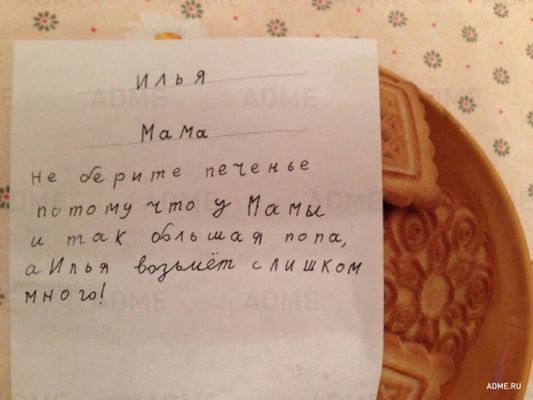 Илья
Мама
не берите печенье
потому что у Мамы
и так большая попа,
а Илья возьмёт слишком
много!
ADME.RU